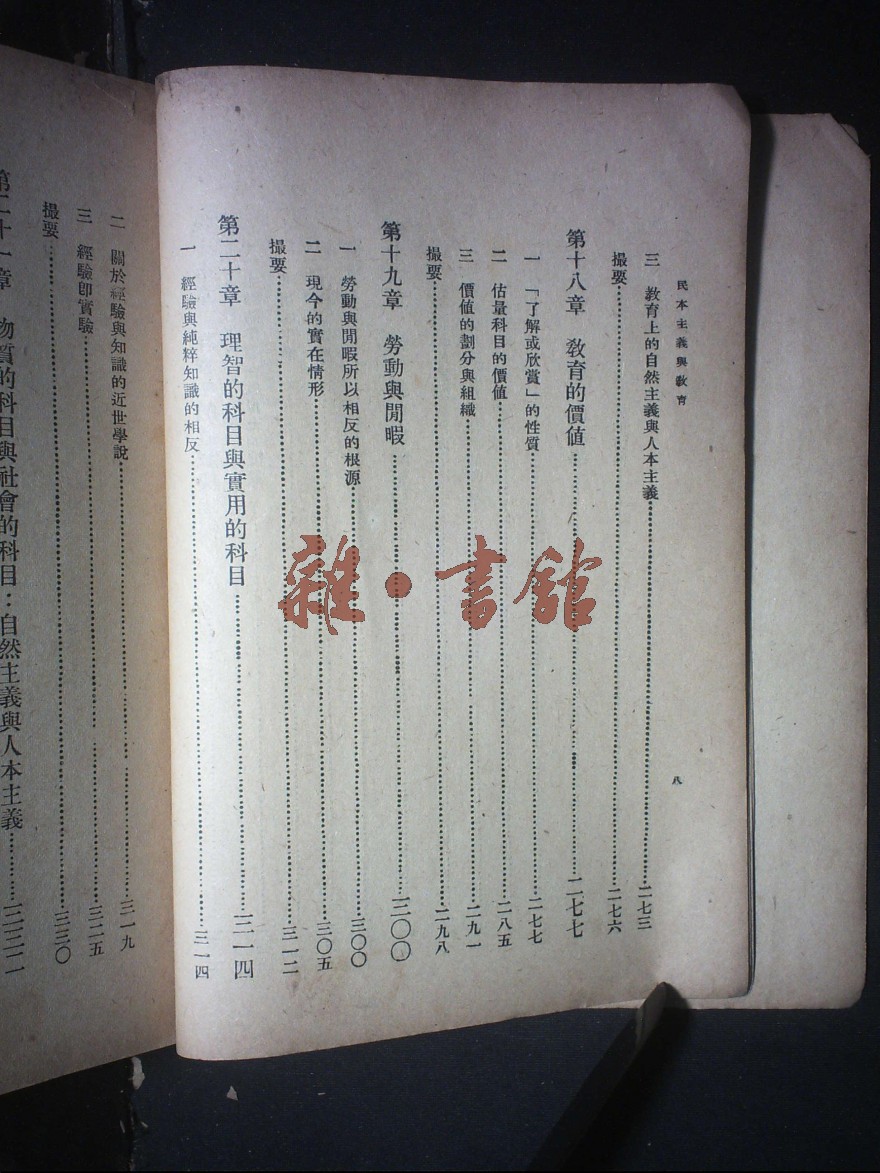 民本主義與教育
八
三　教育上的自然主義與人本主義……二七三
撮要……二七六
第十八章　教育的價値……二七七
一　「了解或欣賞」的性質……二七七
二　估量科目的價値……二八五
三　價値的劃分與組織……二九一
撮要……二九八
第十九章　勞動與閒暇……三〇〇
一　勞動與閒暇所以相反的根源……三〇〇
二　現今的實在情形……三〇五
撮要……三一二
第二十章　理智的科目與實用的科目……三一四
一　經驗與純粹知識的相反……三一四
二　關於經驗與知識的近世學說……三一九
三　經驗卽實驗……三二五
撮要……三三〇
第二十一章　物質的科目與社會的科目：自然主義與人本主義……三三二
雜·書館